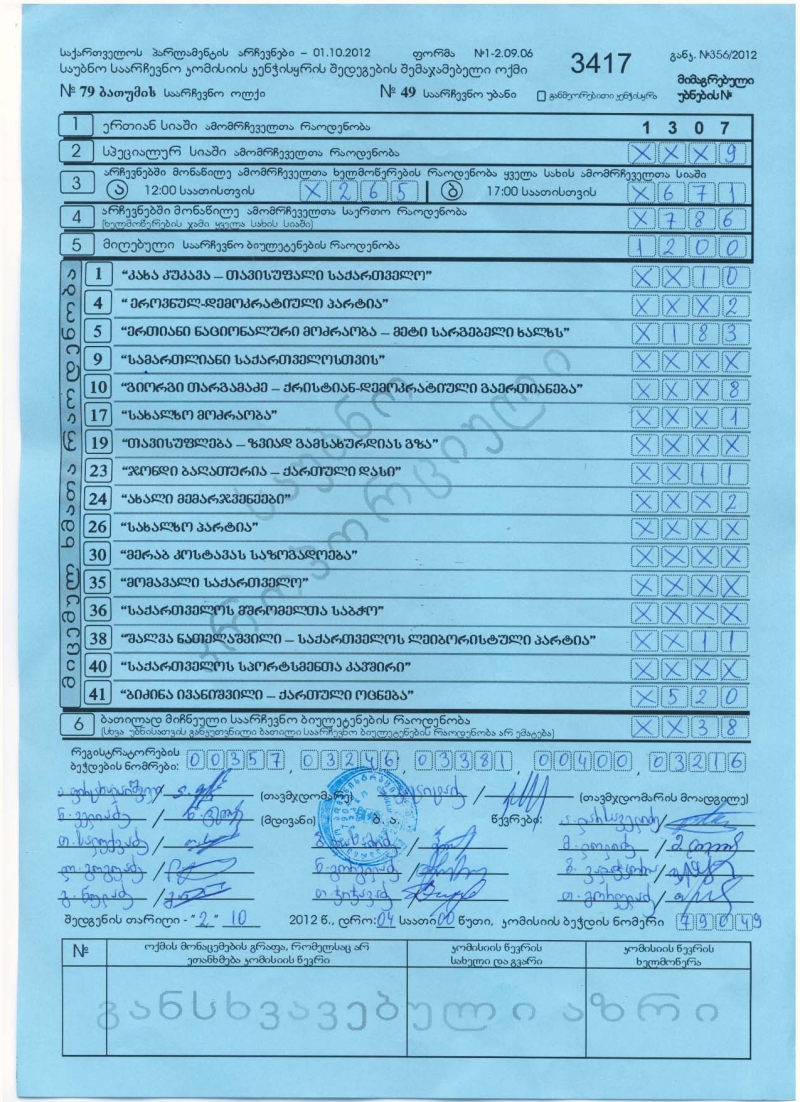 საქართველოს პარლამენტის არჩევნები – 01.10.2012 ფორმა №1-2.09.06 3417 განკ. №356/2012
საუბნო საარჩევნო კომისიის კენჭისყრის შედეგების შემაჯამებელი ოქმი მიმაგრებული
№ 79 ბათუმის საარჩევნო ოლქი № 49 საარჩევნო უბანი განმეორებითი კენჭისყრა უბნების №
1 ერთიან სიაში ამომრჩეველთა რაოდენობა 1307
2 სპეციალურ სიაში ამომრჩეველთა რაოდენობა XXX9
3 არჩევნებში მონაწილე ამომრჩეველთა ხელმოწერების რაოდენობა ყველა სახის ამომრჩეველთა სიაში
ა 12:00 საათისთვის X265 ბ 17:00 საათისთვის X671
4 არჩევნებში მონაწილე ამომრჩეველთა საერთო რაოდენობა X786
(ხელმოწერების ჯამი ყველა სახის სიაში)
5 მიღებული საარჩევნო ბიულეტენების რაოდენობა 1200
მიცემულ ხმათა რაოდენობა
1 "კახა კუკავა – თავისუფალი საქართველო" XX10
4 "ეროვნულ-დემოკრატიული პარტია" XXX2
5 "ერთიანი ნაციონალური მოძრაობა – მეტი სარგებელი ხალხს" X183
9 "სამართლიანი საქართველოსთვის" XXXX
10 "გიორგი თარგამაძე – ქრისტიან-დემოკრატიული გაერთიანება" XXX8
17 "სახალხო მოძრაობა" XXX1
19 "თავისუფლება – ზვიად გამსახურდიას გზა" XXXX
23 "ჯონდი ბაღათურია – ქართული დასი" XX11
24 "ახალი მემარჯვენეები" XXX2
26 "სახალხო პარტია" XXXX
30 "მერაბ კოსტავას საზოგადოება" XXXX
35 "მომავალი საქართველო" XXXX
36 "საქართველოს მშრომელთა საბჭო" XXXX
38 "შალვა ნათელაშვილი – საქართველოს ლეიბორისტული პარტია" XX11
40 "საქართველოს სპორტსმენთა კავშირი" XXXX
41 "ბიძინა ივანიშვილი – ქართული ოცნება" X520
საუბნო
პროპორციული
6 ბათილად მიჩნეული საარჩევნო ბიულეტენების რაოდენობა XX38
(სხვა უბნისათვის განკუთვნილი ბათილი საარჩევნო ბიულეტენების რაოდენობა არ ემატება)
რეგისტრატორების
ბეჭდების ნომრები: 00357, 03246, 03381, 00400, 03216
(თავმჯდომარე) (თავმჯდომარის მოადგილე)
(მდივანი) ბ. ა. წევრები:
შედგენის თარიღი - "2" 10 2012 წ., დრო: 04 საათი 00 წუთი, კომისიის ბეჭდის ნომერი 79049
№ ოქმის მონაცემების გრაფა, რომელსაც არ კომისიის წევრის კომისიის წევრის
ეთანხმება კომისიის წევრი სახელი და გვარი ხელმოწერა
განსხვავებული აზრი